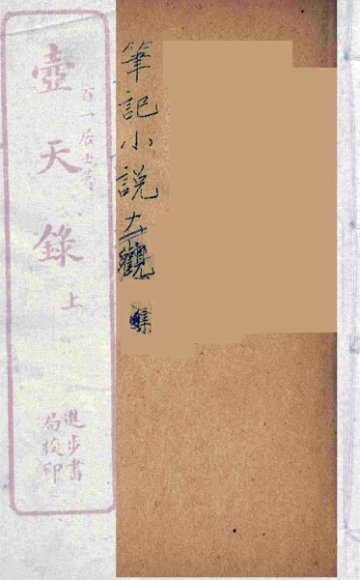 筆記小說大觀
百一居士著
壺天錄 上
進步書
局校印